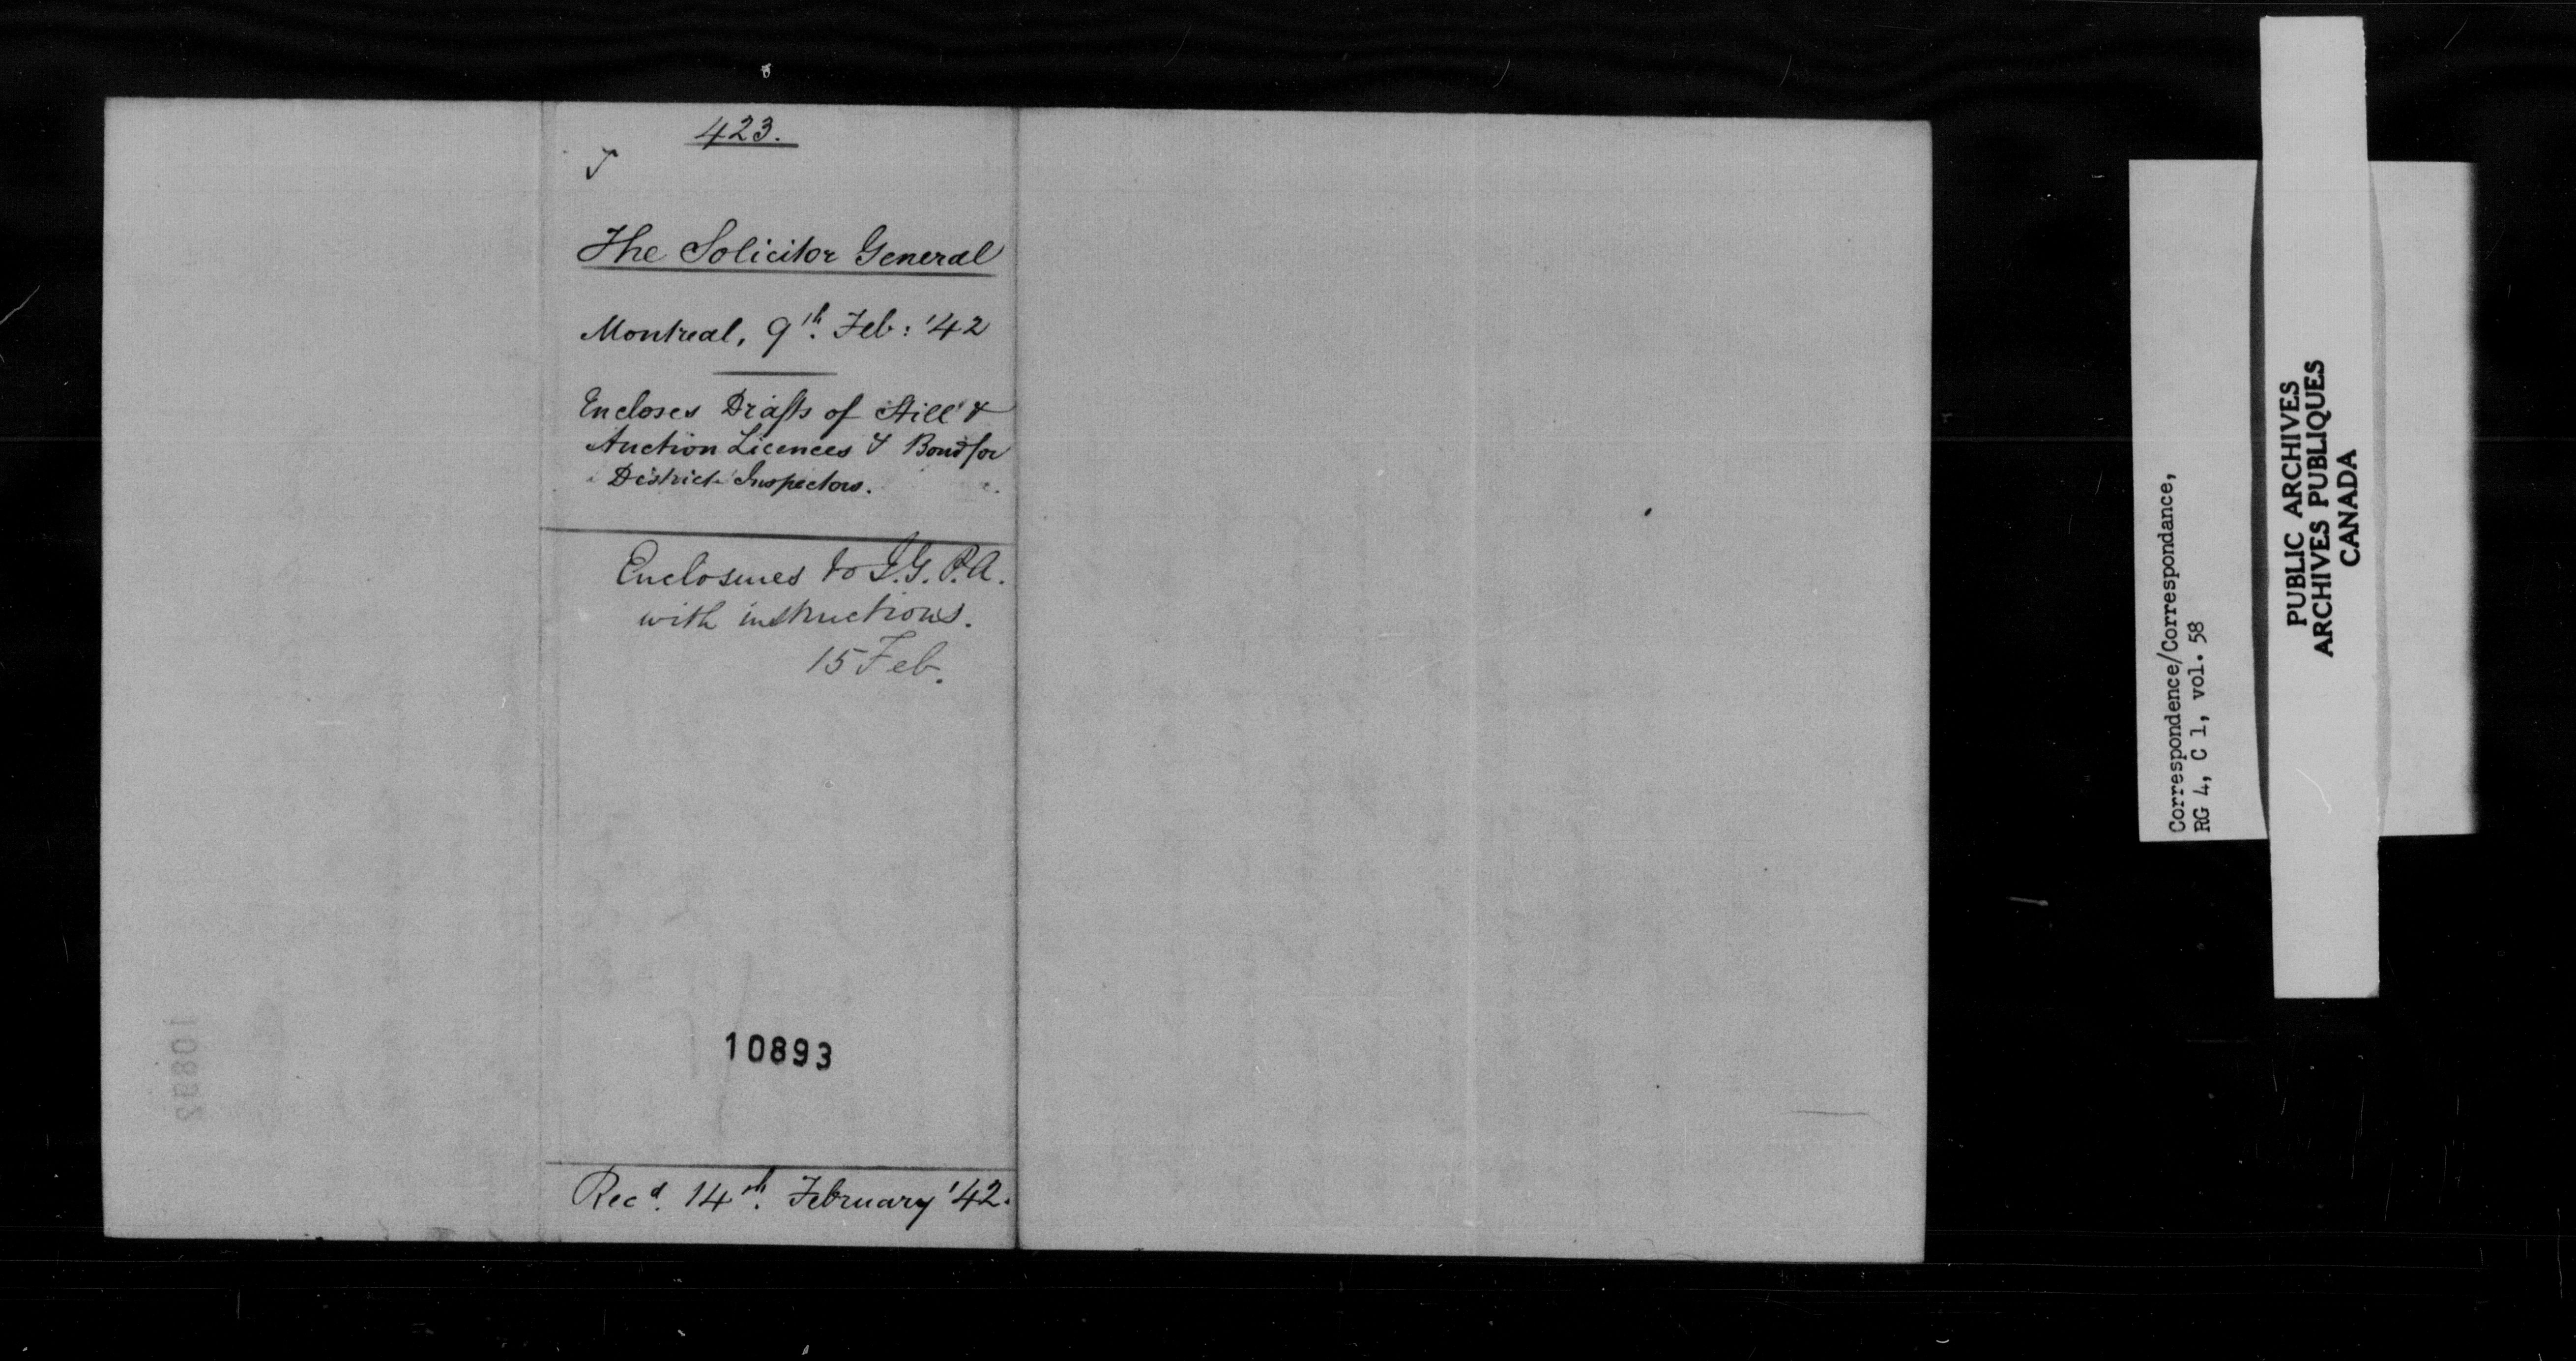 423.
The Solicitor General
Montreal, 9th. Feb: '42
Encloses Drafts of Still &
Auction Licences & Bond for
District Inspectors.
Enclosures to I.G.P.A.
with instructions.
15 Feb.
10893
Recd. 14th. February '42.
Correspondence/Correspondance,
RG 4, C 1, vol. 58
PUBLIC ARCHIVES
ARCHIVES PUBLIQUES
CANADA